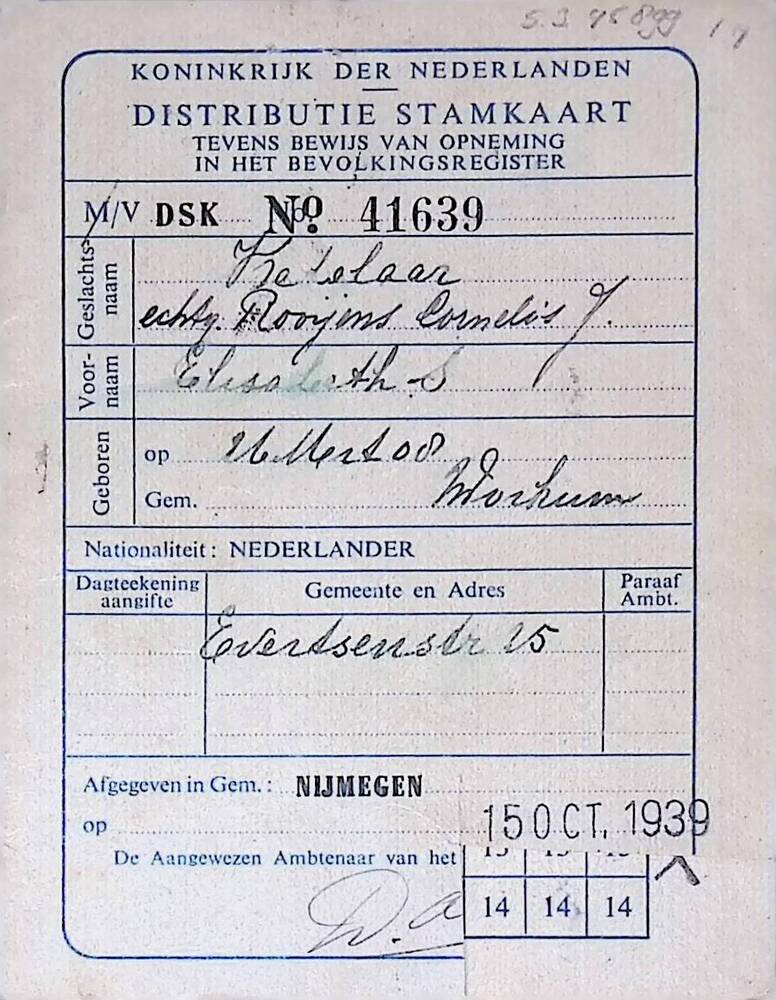 KONINKRIJK DER NEDERLANDEN
DISTRIBUTIE STAMKAART
TEVENS BEWIJS VAN OPNEMING
IN HET BEVOLKINGSREGISTER
M/V DSK No. 41639
Geslachts-
naam
Ketelaar
echtg. Rooijens Cornelis J.
Voor-
naam
Elisabeth S
Geboren
op 26 Mert 08
Gem. Workum
Nationaliteit: NEDERLANDER
Dagteekening
aangifte
Gemeente en Adres
Paraaf
Ambt.
Evertsenstr 15
Afgegeven in Gem.: NIJMEGEN
op 15 OCT. 1939
De Aangewezen Ambtenaar van het
14 14 14